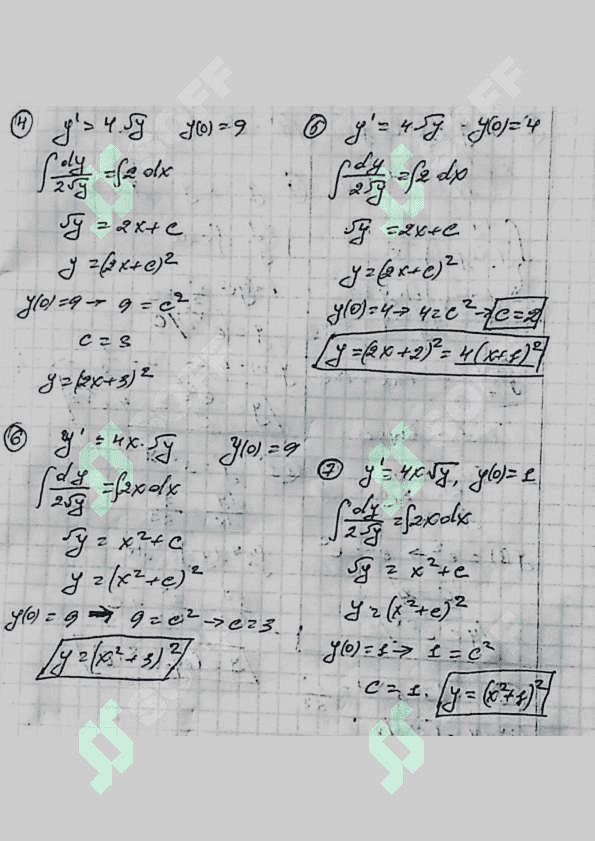 ④ y' = 4·√y   y(0)=9
∫ dy/2√y = ∫2 dx
√y = 2x+c
y = (2x+c)²
y(0)=9 → 9 = c²
c = 3
y = (2x+3)²
⑤ y' = 4√y   y(0)=4
∫ dy/2√y = ∫2 dx
√y = 2x+c
y = (2x+c)²
y(0)=4 → 4=c² → c=2
y = (2x+2)² = 4(x+1)²
⑥ y' = 4x·√y   y(0)=9
∫ dy/2√y = ∫2x dx
√y = x²+c
y = (x²+c)²
y(0) = 9 → 9 = c² → c=3
y = (x²+3)²
⑦ y' = 4x√y, y(0)=1
∫ dy/2√y = ∫2x dx
√y = x²+c
y = (x²+c)²
y(0)=1 → 1 = c²
c = 1. y = (x²+1)²